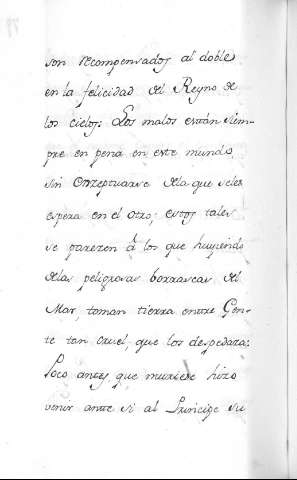 son recompensados al doble
en la felicidad del Reyno de
los cielos: Los malos están siem-
pre en pena en este mundo,
sin conzeptuarse dela que seles
espera en el otro; estos tales
se parezen à los que huyendo
delas peligrosas borrascas del
Mar, toman tierra entre Gen-
te tan cruel que los despedaza:
Poco antes que muriese hizo
venir ante si al Principe su